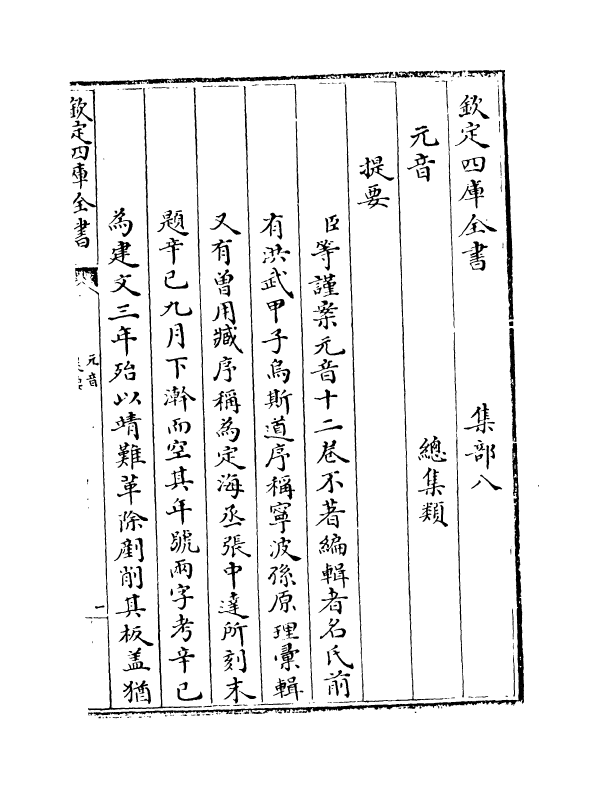 欽定四庫全書 集部八
元音 總集類
提要
臣等謹案元音十二卷不著編輯者名氏前
有洪武甲子烏斯道序稱寧波孫原理彙輯
又有曾用臧序稱為定海丞張中達所刻末
題辛巳九月下澣而空其年號兩字考辛巳
為建文三年殆以靖難革除剷削其板盖猶
欽定四庫全書
元音
一